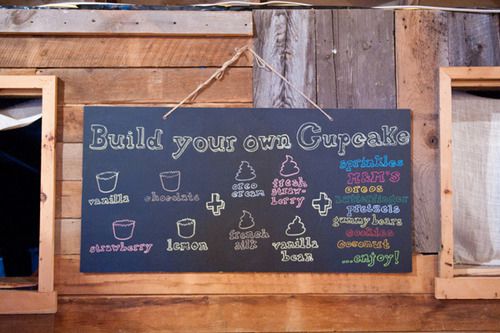 Build your own Cupcake
vanilla
chocolate
strawberry
lemon
+
oreo
cream
fresh
straw-
berry
french
silk
vanilla
bean
+
sprinkles
M&M's
oreos
butterfinger
pretzels
gummy bears
cookies
coconut
...enjoy!